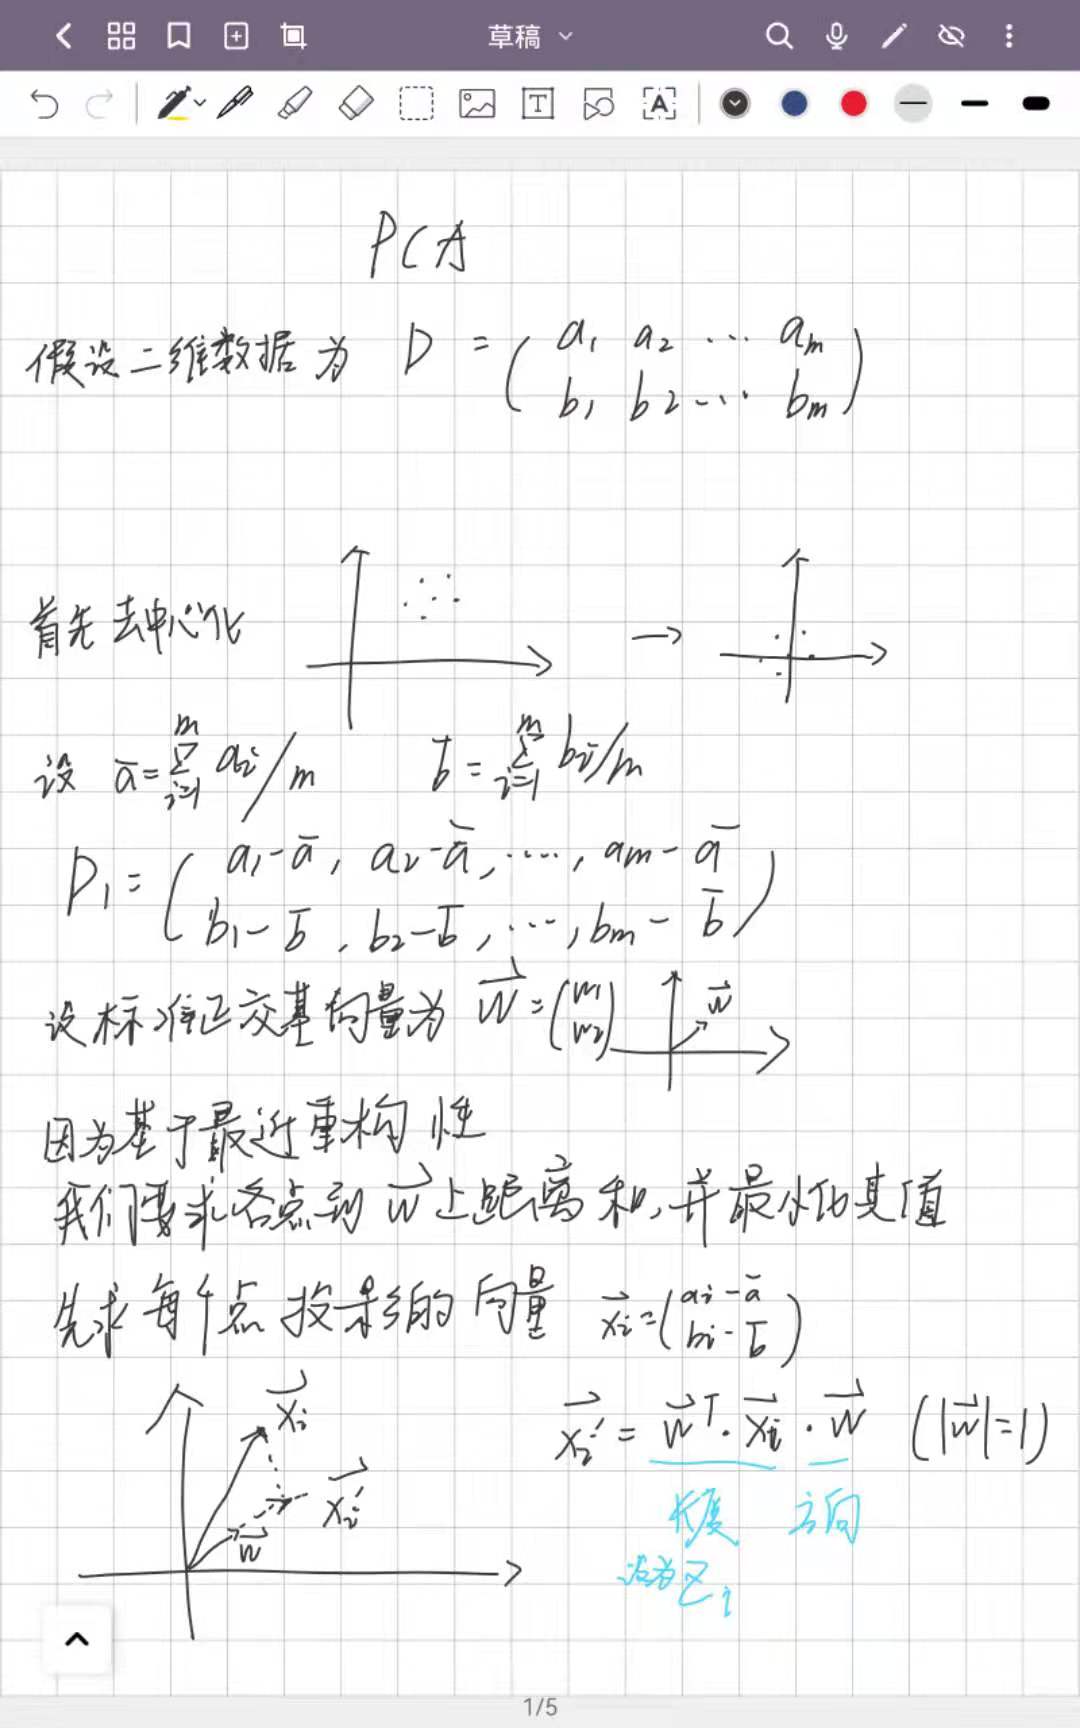 草稿
PCA
假设二维数据为 D = ( a₁ a₂ ... aₘ
b₁ b₂ ... bₘ )
首先去中心化 →
设 ā = Σᵢ₌₁ᵐ aᵢ/m b̄ = Σᵢ₌₁ᵐ bᵢ/m
D₁ = ( a₁-ā, a₂-ā, ...., aₘ-ā
b₁-b̄, b₂-b̄, ..., bₘ-b̄ )
设标准正交基向量为 W⃗ = ( w₁
w₂ ) w⃗
因为基于最近重构性
我们要求各点到 w⃗ 上距离和,并最小化其值
先求每个点投影的向量 x⃗ᵢ = ( aᵢ-ā
bᵢ-b̄ )
x⃗ᵢ
x⃗ᵢ′
w⃗
x⃗ᵢ′ = w⃗ᵀ·x⃗ᵢ·w⃗ (|w⃗|=1)
长度 方向
设为 Zᵢ
1/5